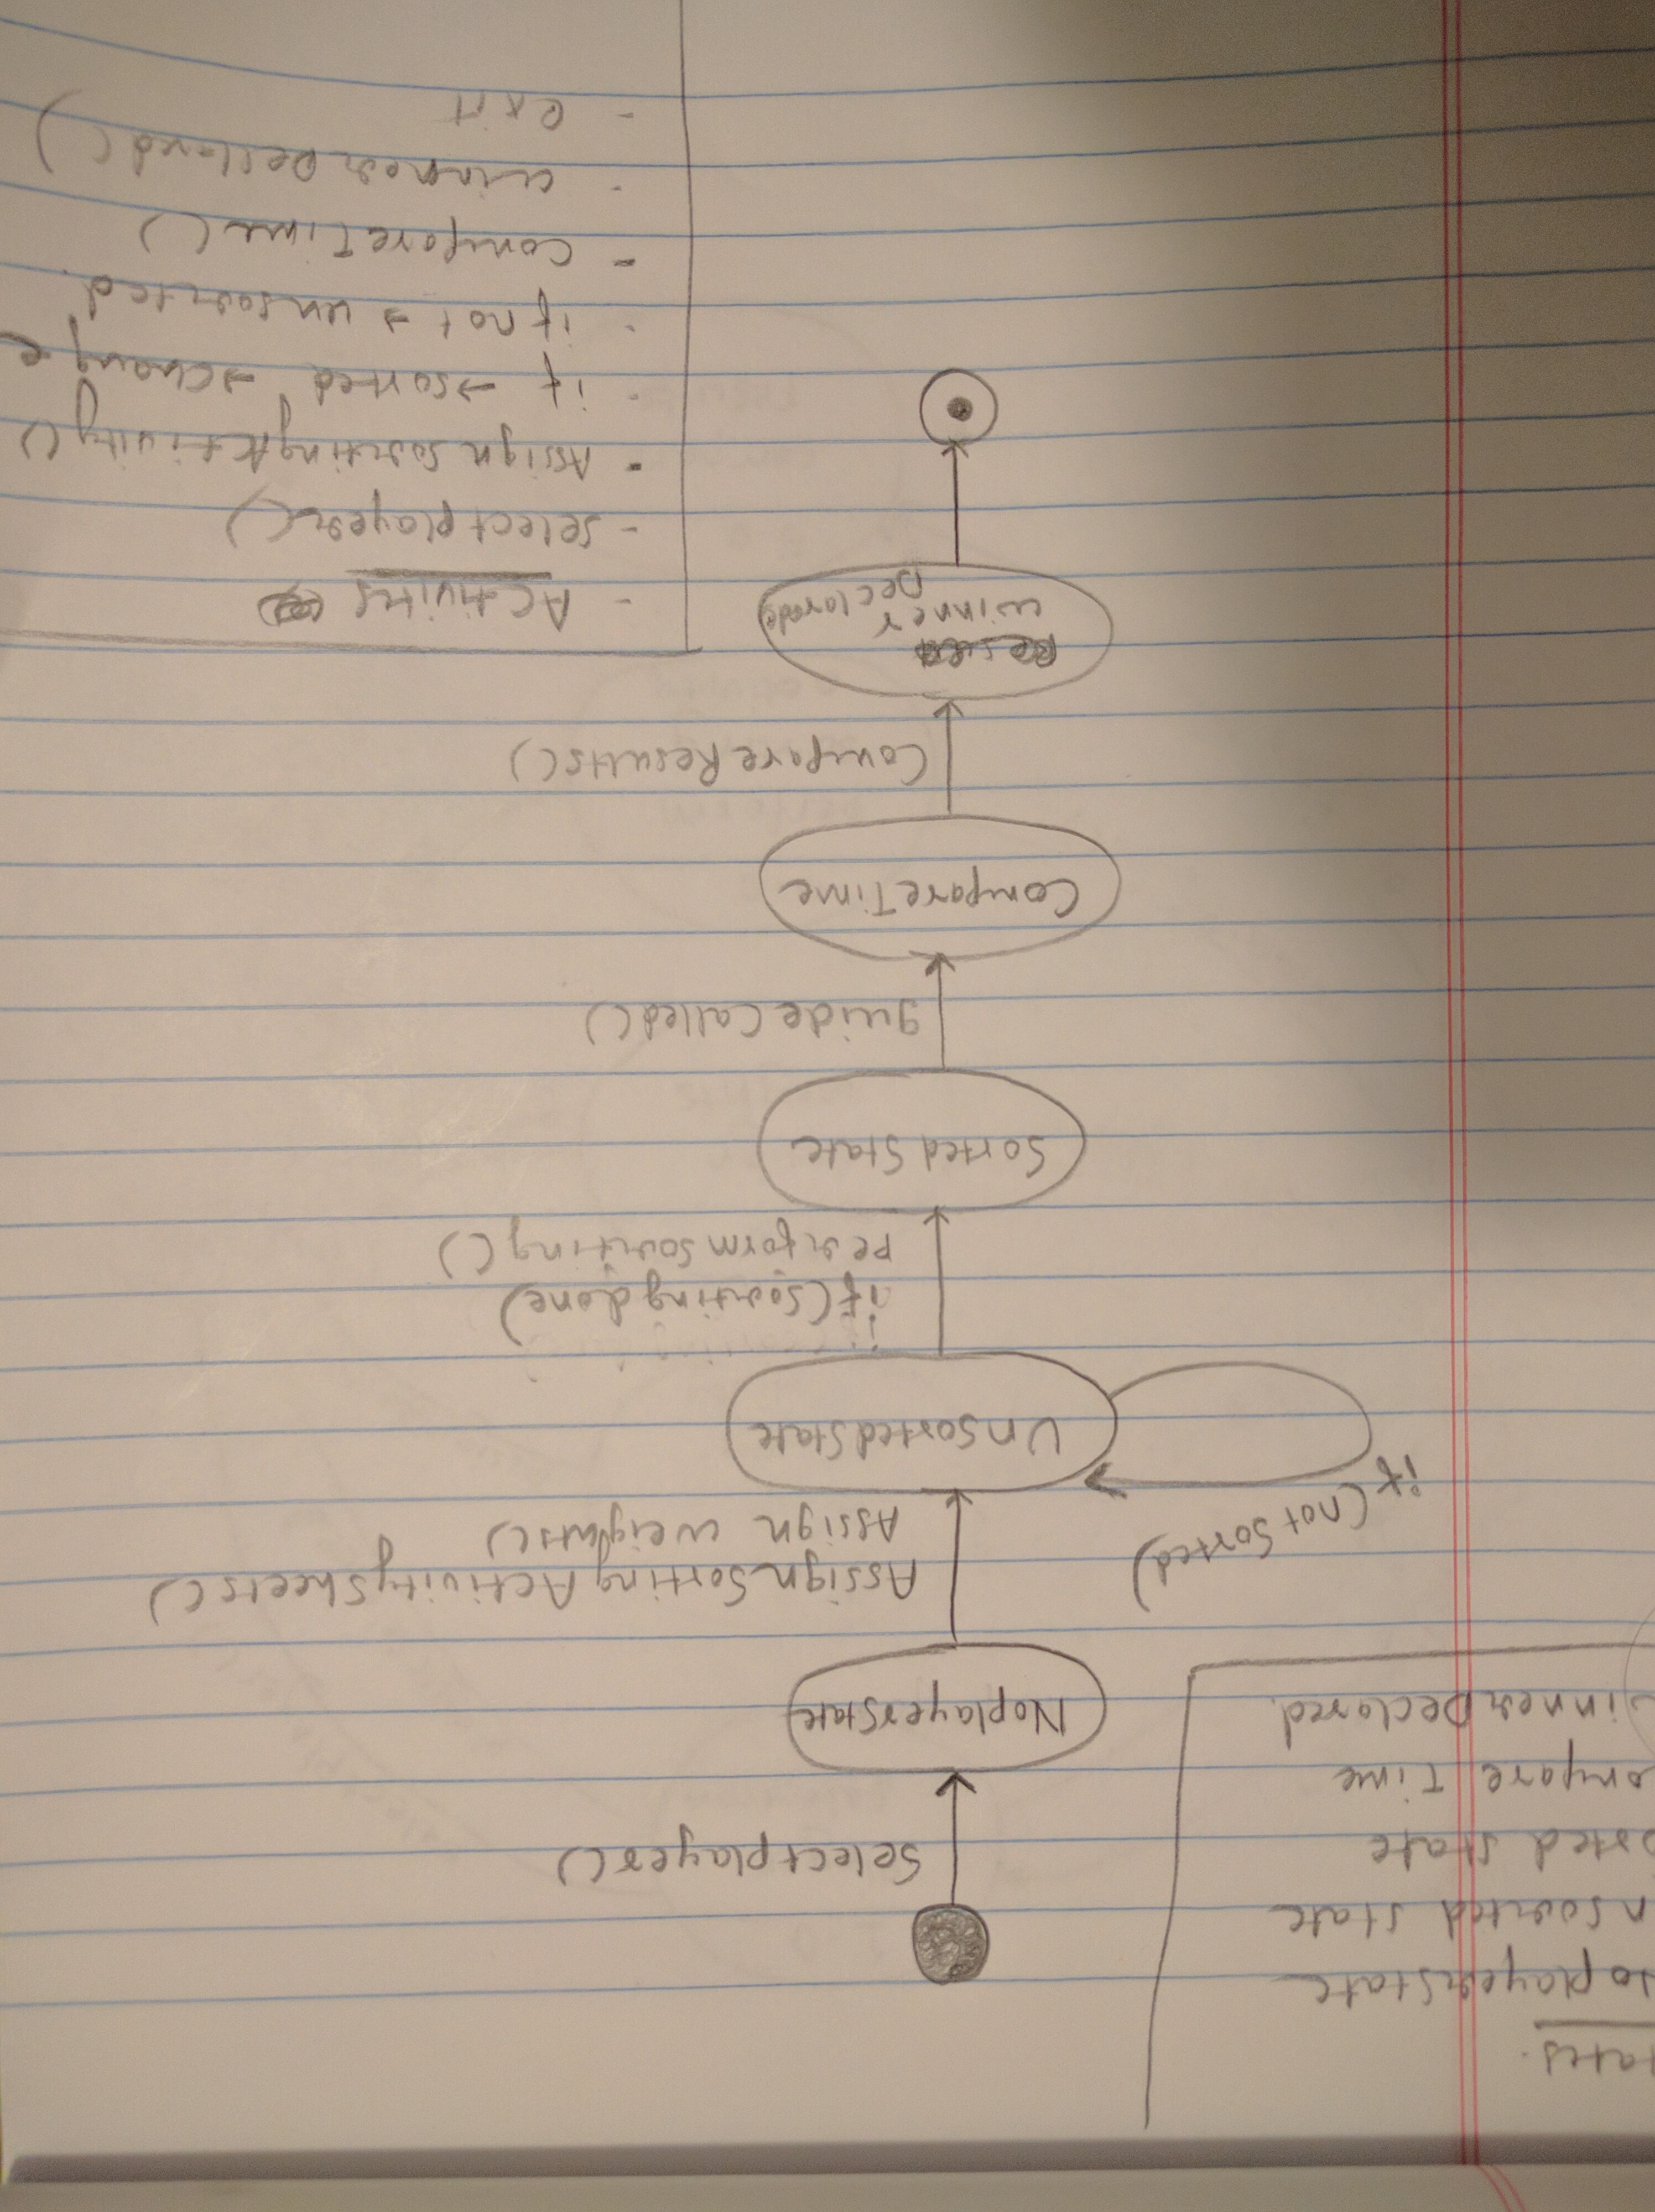 tates.
oplayerstate
nsorted state
orted state
ompare Time
inner Declared.
Selectplayer()
Noplayerstate
AssignSortingActivitysheets()
Assign weights()
if (not sorted)
UnSortedState
if(sortingdone)
performsorting()
SortedState
guidecalled()
CompareTime
CompareResults()
winner
Declared
- Activities
- selectplayer()
- Assign sortingActivity()
- if → sorted → change
- if not → unsorted.
- compareTime()
- winner Declared()
- exit